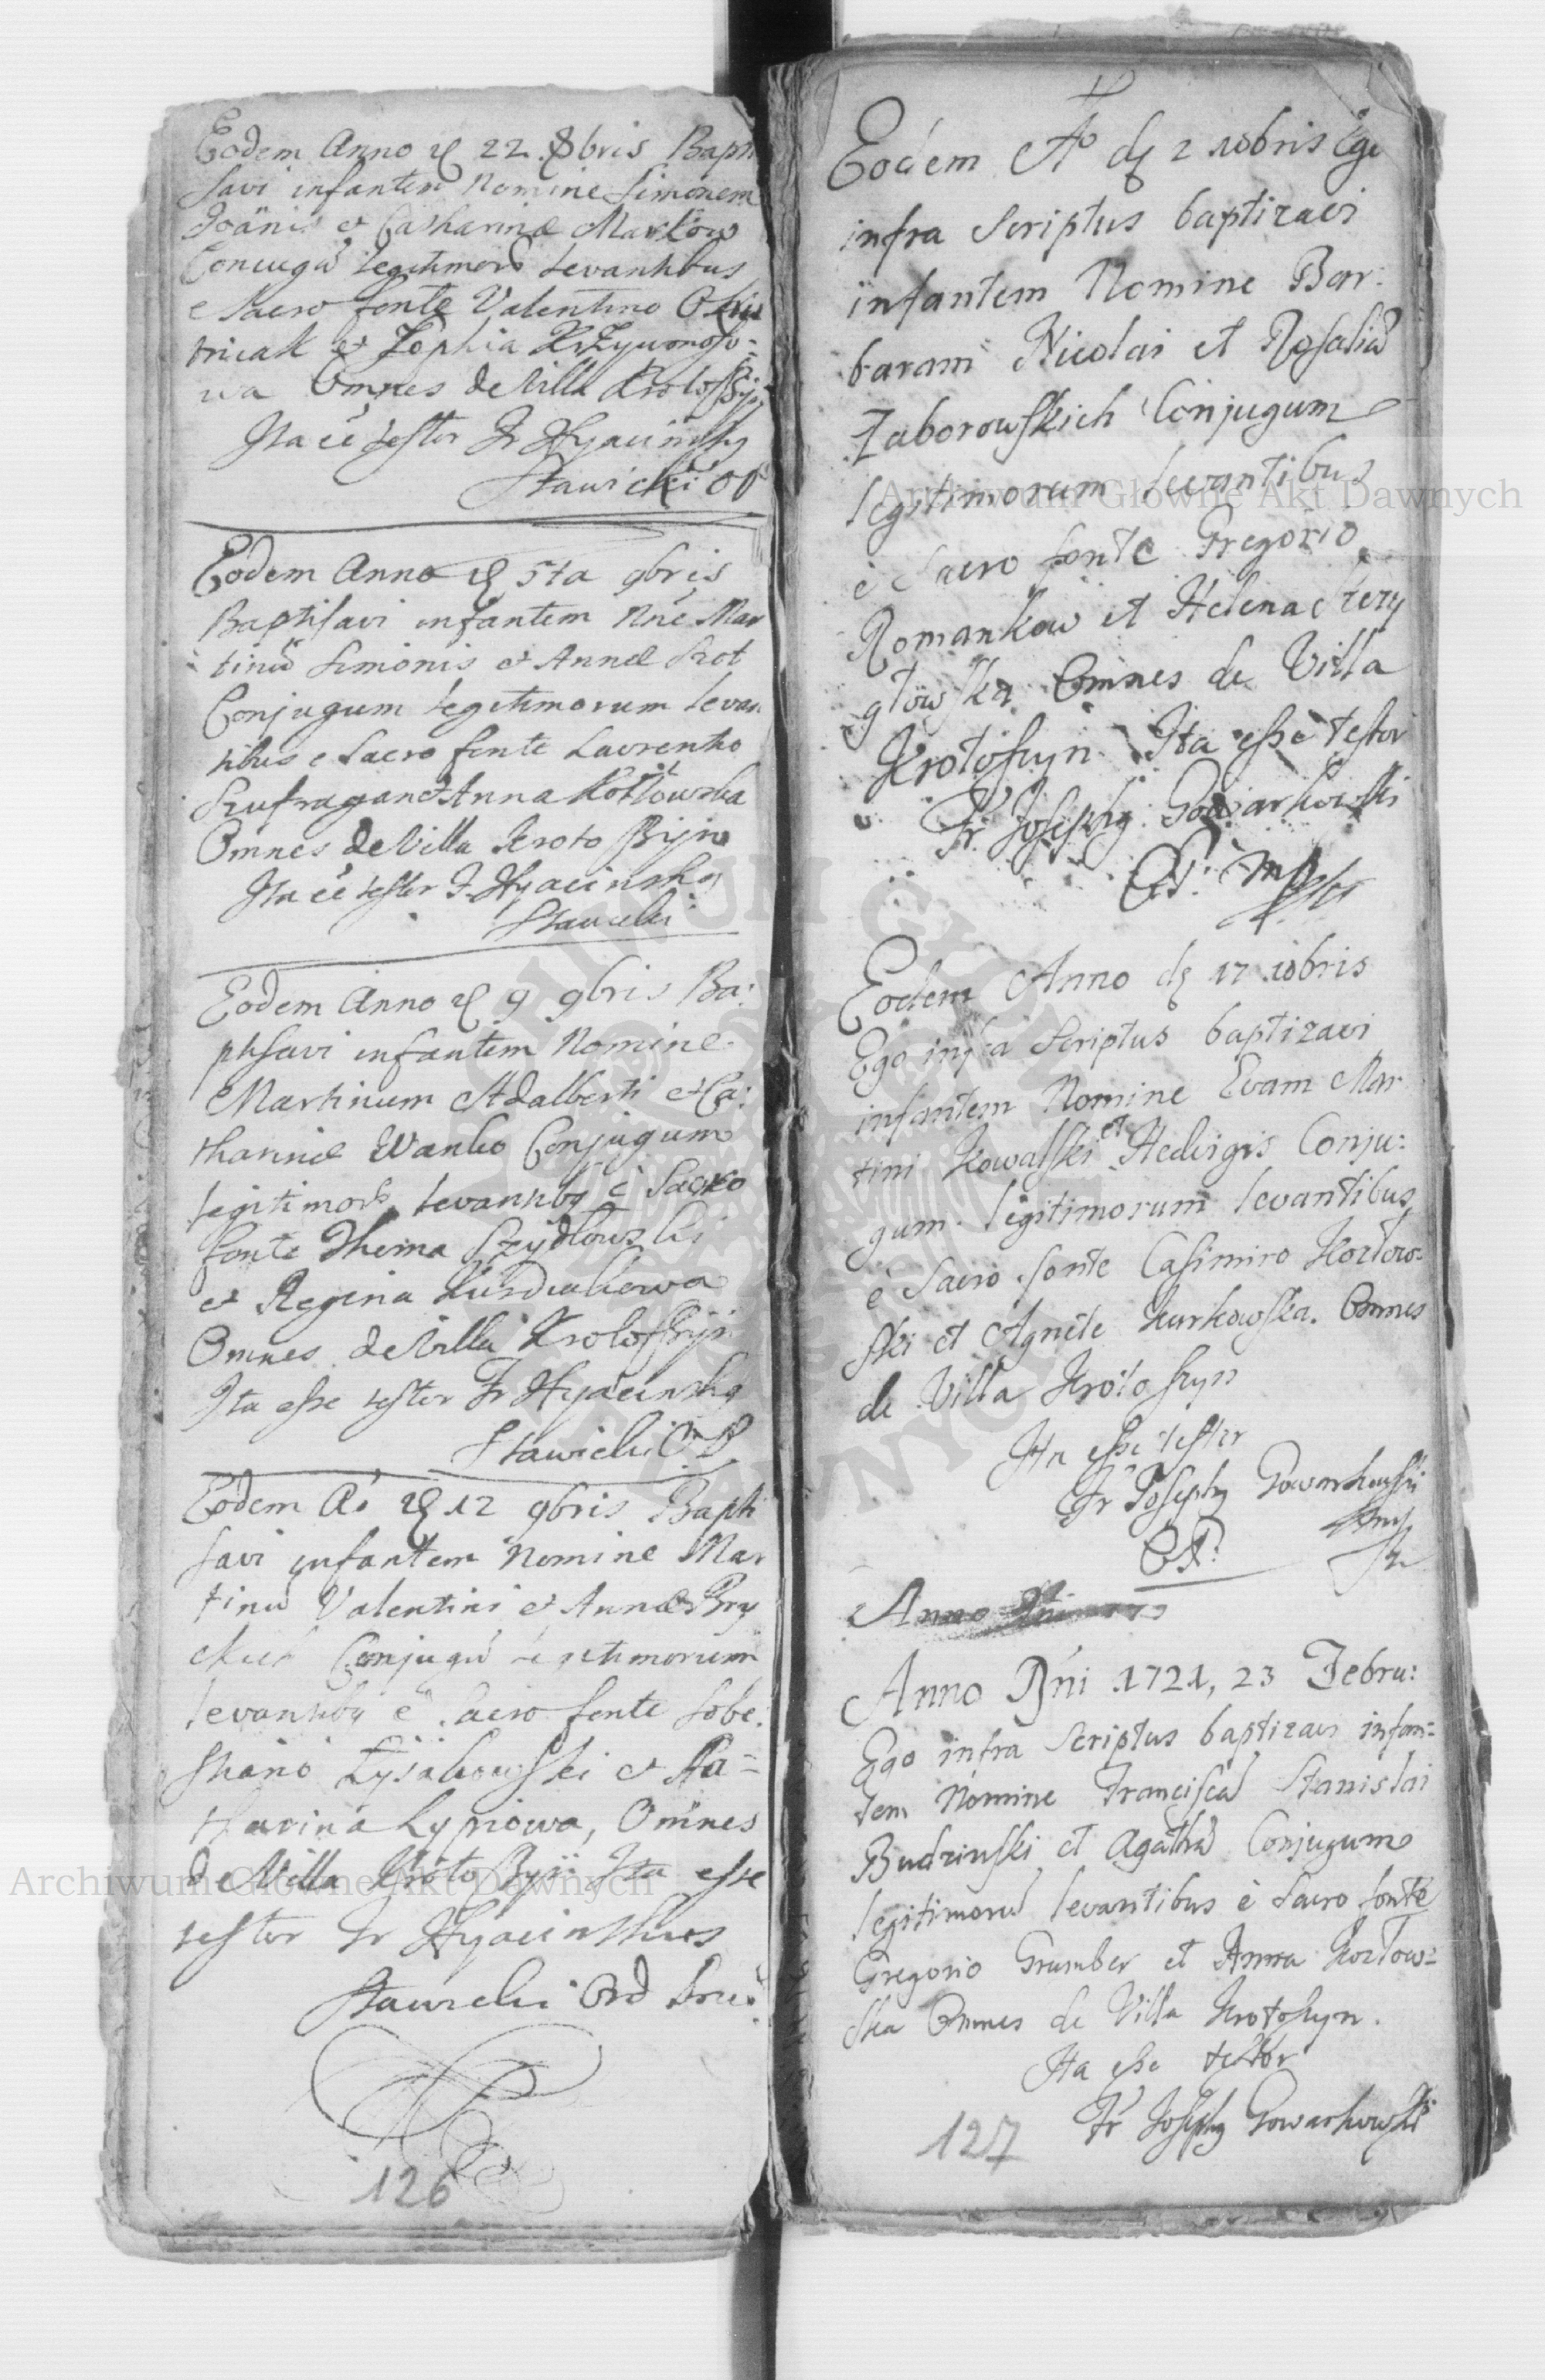 Eodem Anno d 22 8bris Bapti
savi infantem Nomine Simonem
Joānis et Catharinæ Markow
Conjugū legitimorū levantibus
e Sacro fonte Valentino
et Zophia Krzywonoso=
wa Omnes de Villa Krotoszyn
Ita eē testor Fr Hyacinthꝰ
Stawicki OP
Eodem Anno d 5ta 9bris
Baptisavi infantem Nne Mar
tinū Simonis et Annæ Szot
Conjugum legitimorum levan
tibus e Sacro fonte Laurentio
Szufragan et Anna Kotłowska
Omnes de Villa Krotoszyn
Ita eē testor F. Hyacinthꝰ
Stawicki
Eodem Anno d 9 9bris Ba:
ptisavi infantem Nomine
Martinum Adalberti et Ca:
tharinæ Wanko Conjugum
legitimorū levantibꝰ è Sacro
fonte Thoma Szydłowski
et Regina Kurdwakowa
Omnes de Villa Krotoszyn
Ita esse testor Fr Hyacinthꝰ
Stawicki O P
Eodem Aō d 12 9bris Bapti
savi infantem Nomine Mar
tinū Valentini et Annæ Bry
Conjugū legitimorum
levantibꝰ è Sacro fonte Sebe:
stiano Łysakowski et Ka=
tharina Łypiowa, Omnes
de Villa Krotoszyn Ita esse
testor Fr Hyacinthus
Stawicki Ord Præd:
126
Eodem Aº d 2 10bris Ego
infra Scriptus baptizavi
infantem Nomine Bar:
baram Nicolai et Rosaliæ
Zaborowskich Conjugum
legitimorum levantibus
è Sacro fonte Gregorio
Romankow et Helena Szczy
głowska Omnes de Villa
Krotoszyn. Ita esse testor
Fr. Josephꝰ Gowarkowski
OP. mpp
Eodem Anno d 17 10bris
Ego infra Scriptus baptizavi
infantem Nomine Evam Mar
tini Kowalski et Hedvigis Conju:
gum legitimorum levantibus
è Sacro fonte Casimiro Kozłow=
ski et Agnete Kurkowska. Omnes
de Villa Krotoszyn
Ita esse testor
Fr Josephꝰ Gowarkowski
OP.
Anno Dni
Anno Dñi 1721, 23 Febru:
Ego infra Scriptus baptizavi infan=
tem Nomine Franciscā Stanislai
Budzinski et Agathæ Conjugum
legitimorū levantibus è Sacro fonte
Gregorio Grumber et Anna Kozłow=
ska Omnes de Villa Krotoszyn.
Ita esse testor
Fr Josephꝰ Gowarkowski
127
Archiwum Główne Akt Dawnych
Archiwum Główne Akt Dawnych